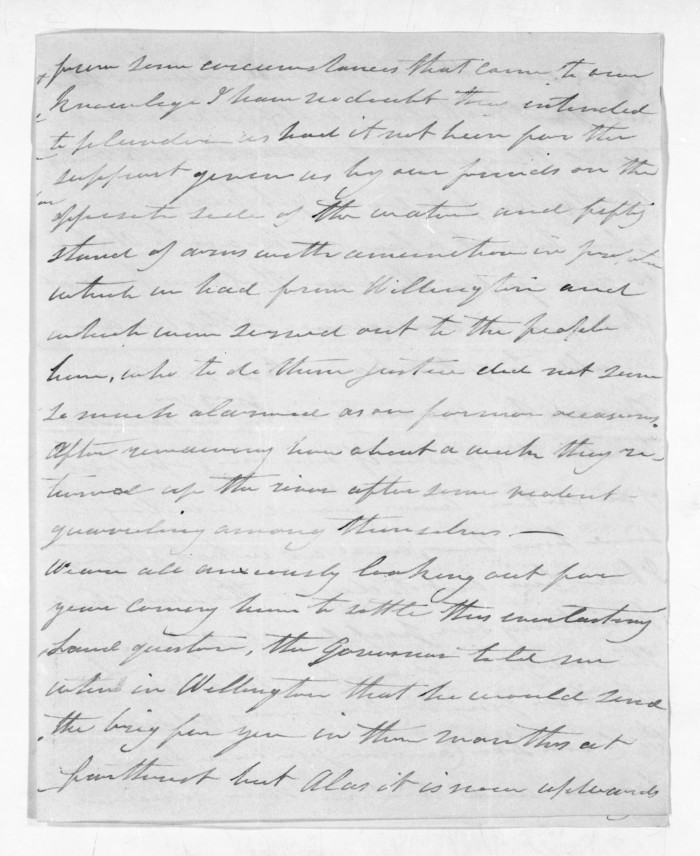 from some circumstances that came to our
knowledge I have no doubt they intended
to plunder us had it not been for the
support given us by our friends on the
opposite side of the water and fifty
stand of arms with amunition in
which we had from Wellington and
which were served out to the people
here, who to do them justice did not seem
so much alarmed as on former occasions.
After remaining here about a week they re-
turned up the river after some violent
quarreling among themselves —
We are all anxiously looking out for
your coming here to settle this everlasting
Land question, the Governor told me
when in Wellington that he would send
the brig for you in three months at
farthest but Alas it is now upwards